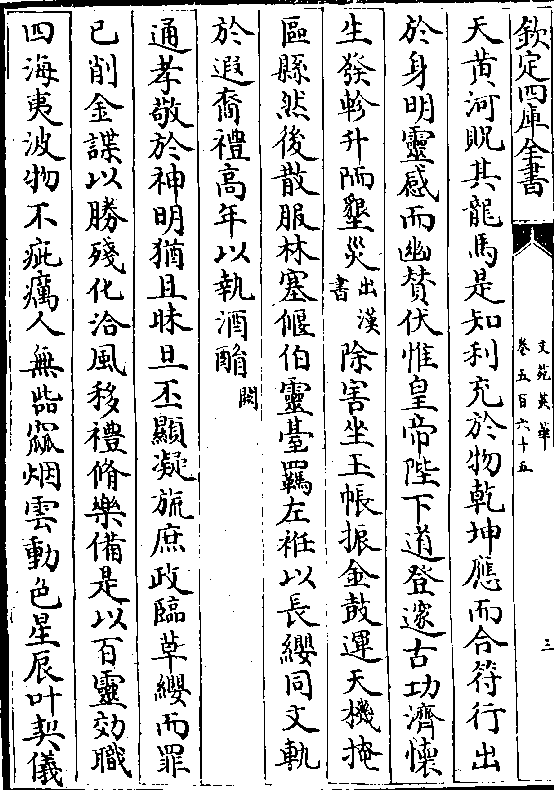 欽定四庫全書
文苑英華
卷五百六十五
三
天黃河貺其龍馬是知利充於物乾坤應而合符行出
於身明靈感而幽賛伏惟皇帝陛下道登邃古功濟懷
生發軫升陑墾災出漢書除害坐玉帳振金鼓運天機掩
區縣然後散服林塞偃伯靈臺羈左袵以長纓同文軌
於遐裔禮高年以執酒酳闕
通孝敬於神明猶且昧旦丕顯凝旒庶政臨草纓而罪
已削金諜以勝殘化洽風移禮脩樂備是以百靈効職
四海夷波物不疵癘人無呰窳烟雲動色星辰叶契儀